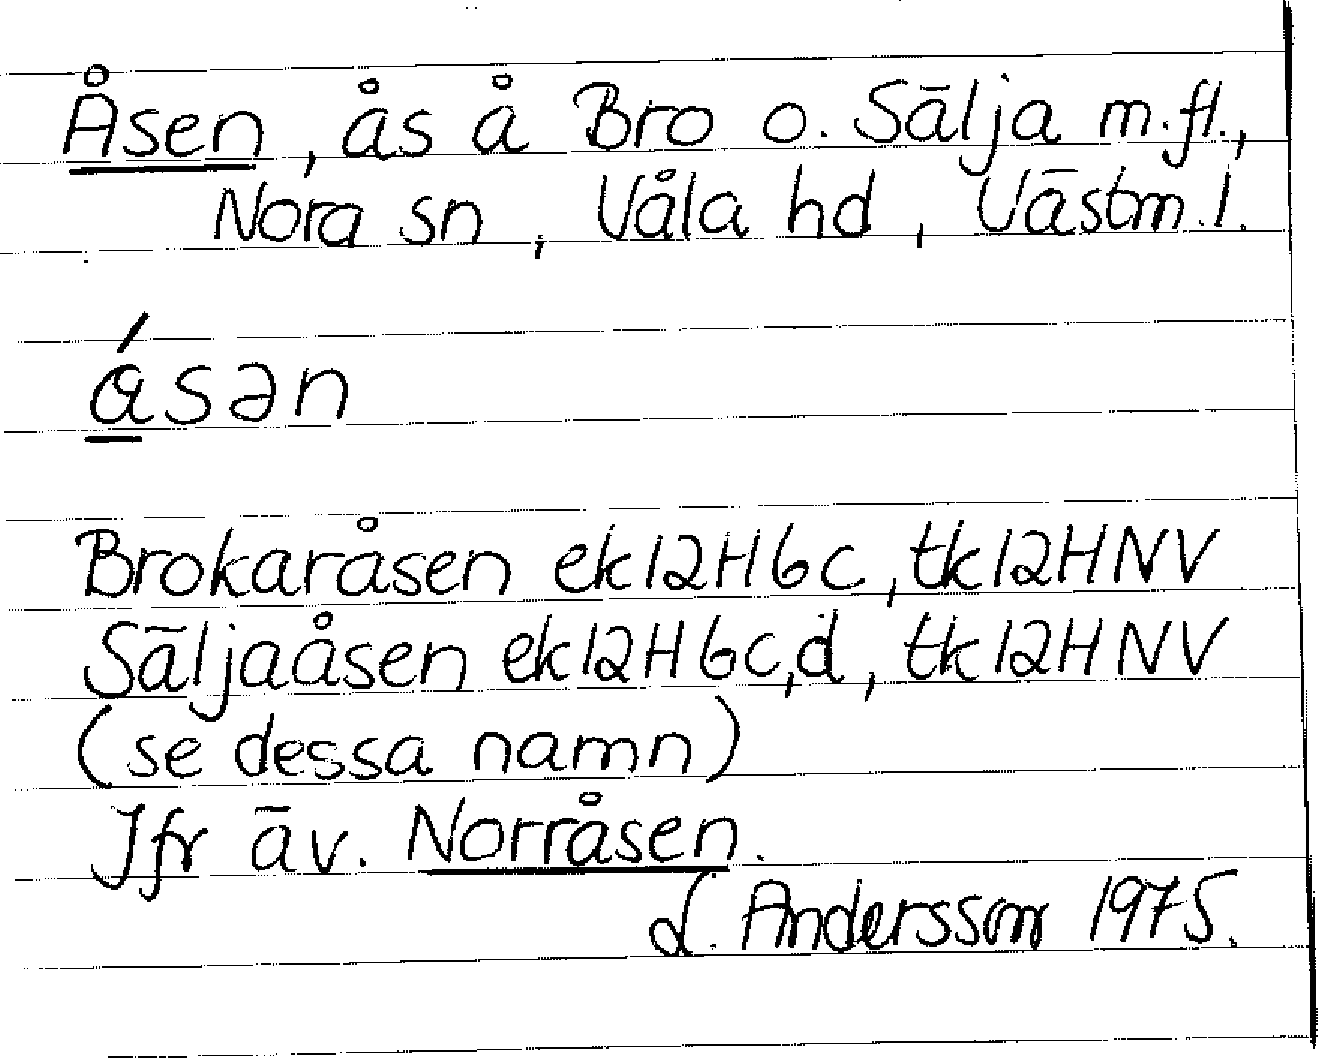 Åsen, ås å Bro o. Sälja m.fl.,
Nora sn, Våla hd, Västm.l.
ásən
Brokaråsen ek12H6c, tk12HNV
Säljaåsen ek12H6c,d, tk12HNV
(se dessa namn)
Jfr äv. Norråsen.
L. Andersson 1975.